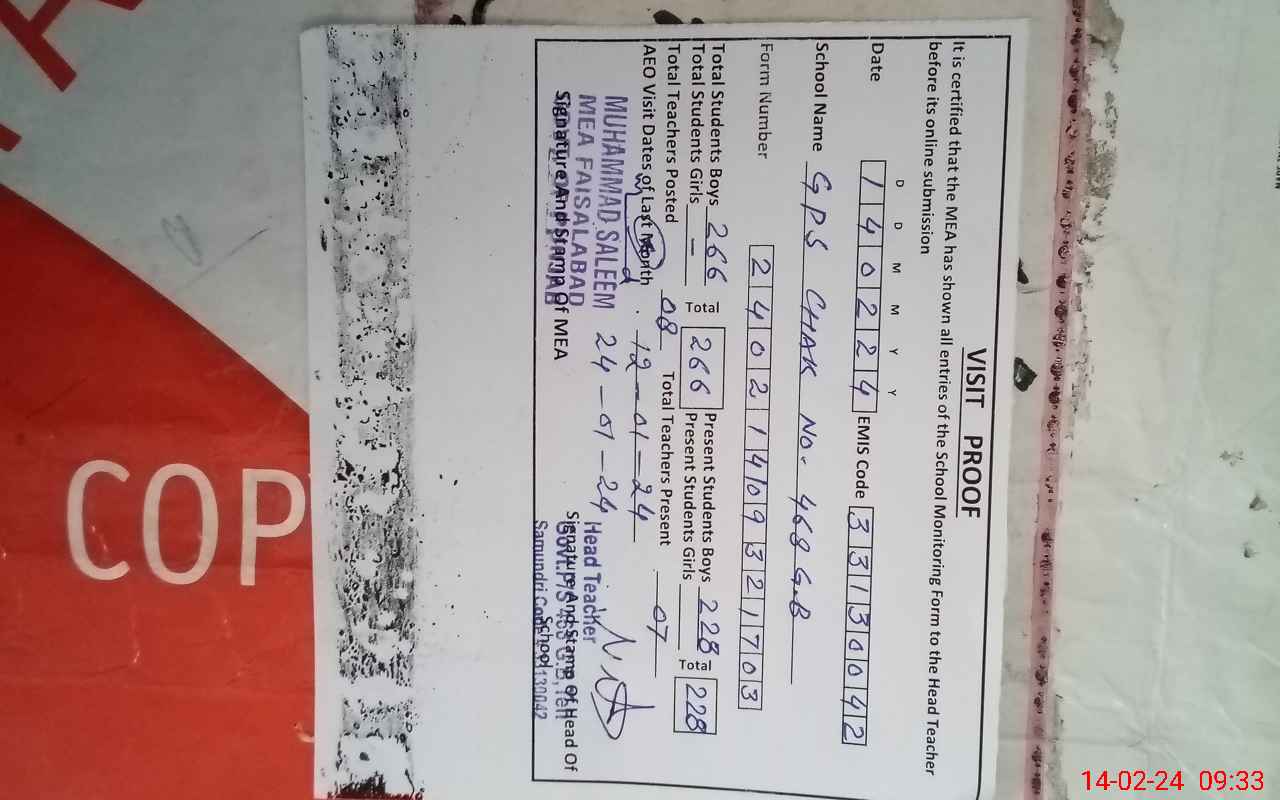 VISIT PROOF
It is certified that the MEA has shown all entries of the School Monitoring Form to the Head Teacher
before its online submission
D D M M Y Y
Date 140224 EMIS Code 33130042
School Name GPS CHAK No. 468 G.B
Form Number 24021409321703
Total Students Boys 266 Total 266 Present Students Boys 228 Total 228
Total Students Girls - Present Students Girls
Total Teachers Posted 08 Total Teachers Present 07
AEO Visit Dates of Last Month 12-01-24
24-01-24
MUHAMMAD SALEEM
MEA FAISALABAD
Signature And Stamp Of MEA
Head Teacher
Signature And Stamp Of Head Of
School
COP
14-02-24 09:33